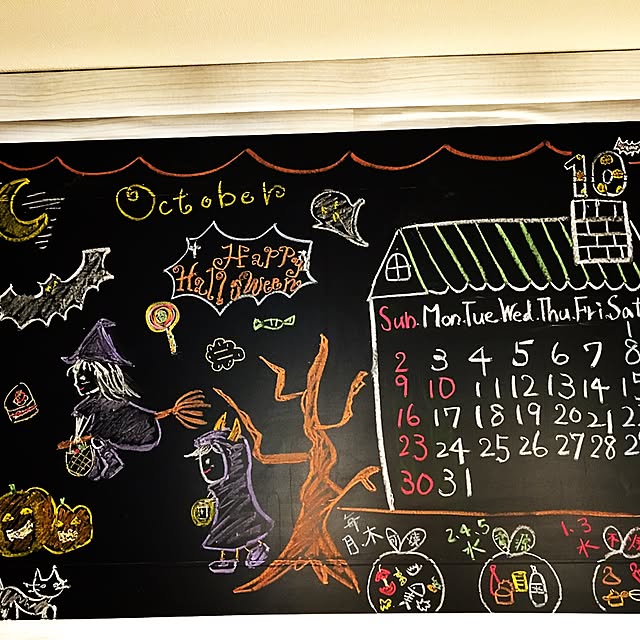 October
10
Happy
Halloween
Sun. Mon. Tue. Wed. Thu. Fri. Sat
1
2 3 4 5 6 7 8
9 10 11 12 13 14 15
16 17 18 19 20 21
23 24 25 26 27 28
30 31
毎
月.木
2.4.5
水 資源
1.3
水